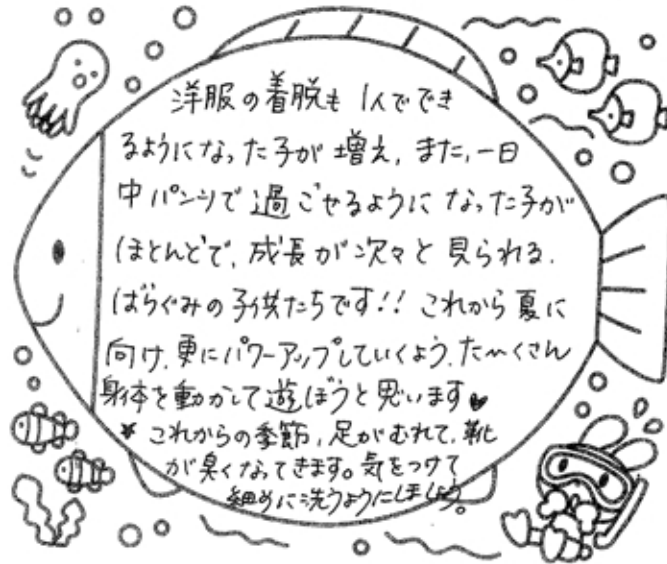 洋服の着脱も 1人ででき
るようになった子が増え、また、一日
中パンツで過ごせるようになった子が
ほとんどで、成長が次々と見られる、
ばらぐみの子供たちです!! これから夏に
向け、更にパワーアップしていくよう、た〜くさん
身体を動かして遊ぼうと思います♥
* これからの季節、足がむれて、靴
が臭くなってきます。気をつけて
細めに洗うようにしましょう。